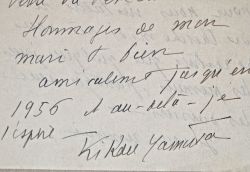 Hommages de mon
mari et bien
amicalement jusqu'en
1956 et au-delà - je
l'espère -
Kikou Yamata